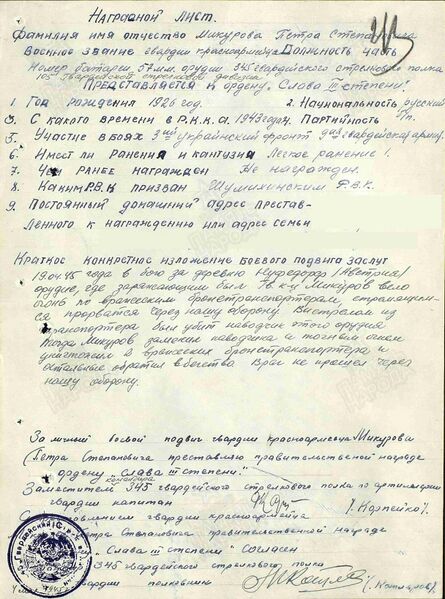 Наградной лист.
Фамилия имя отчество Микурова Петра Степановича
Военное звание гвардии красноармеец Должность часть
Номер батареи 57 мм. орудий 345 гвардейского стрелкового полка
105 гвардейской стрелковой дивизии
Представляется к ордену. Слава III степени.
1 Год рождения 1926 год. 2. Национальность русский
3. С какого времени в Р.К.К.А. 1943 года 4. Партийность б/п.
5. Участие в боях 3ий украинский фронт 9ая гвардейская армия
6. Имеет ли ранения и кантузия Легкое ранение 1.
7. Чем ранее награжден Не награжден.
8. Каким Р.В.К призван Шумихинским Р.В.К.
9. Постоянный домашний адрес представ-
ленного к награждению или адрес семьи
Краткое конкретное изложение боевого подвига заслуг
19.04.45 года в бою за деревню /Австрия/
орудие, где заряжающим был гв. к-ц Микуров вело
огонь по вражеским бронетранспортерам, стремящем-
ся прорватся через нашу оборону. Выстрелом из
транспортера был убит наводчик этого орудия
тогда Микуров заменил наводчика и точным огнем
уничтожил 2 вражеских бронетранспортера и
остальные обратил в бегство Враг не прошел через
нашу оборону.
За личный боевой подвиг гвардии красноармейца Микурова
Петра Степановича преставляю правительственной награде
ордену „Слава III степени."
командира
Заместитель 345 гвардейского стрелкового полка по артиллерии
гвардии капитан /. Карпейко/.
С преставлением гвардии красноармейца
Петра Степановича правительственной награде
„Слава III степени" согласен
345 гвардейского стрелкового полка
гвардии полковник /. Котляров/.
1945 г.